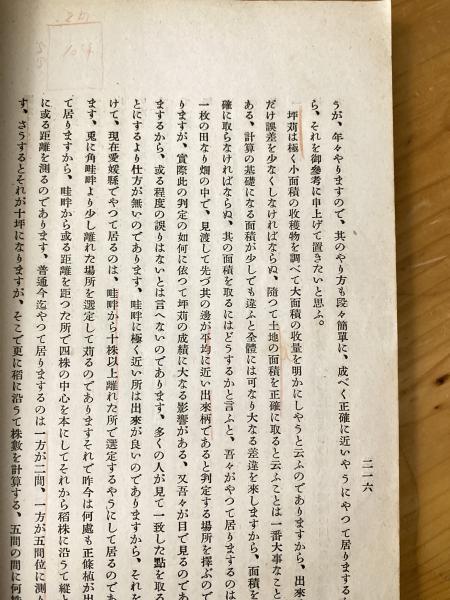 二一六
うが、年々やりますので、其のやり方も段々簡單に、成べく正確に近いやうにやつて居りまする
ら、それを御參考に申上げて置きたいと思ふ。
坪苅は極く小面積の收穫物を調べて大面積の收量を明かにしやうと云ふのでありますから、出來
だけ誤差を少なくしなければならぬ、隨つて土地の面積を正確に取ると云ふことは一番大事なこと
ある、計算の基礎になる面積が少しでも違ふと全體には可なり大なる差違を來しますから、面積を
確に取らなければならぬ、其の面積を取るにはどうするかと言ふと、吾々がやつて居りまするのは
一枚の田なり畑の中で、見渡して先づ其の邊が平均に近い出來柄であると判定する場所を擇ぶので
りますが、實際此の判定の如何に依つて坪苅の成績に大なる影響がある、又吾々が目で見るのであ
まするから、或る程度の誤りはないとは言へないのであります、多くの人が見て一致した點を取る
とにするより仕方が無いのであります、畦畔に極く近い所は出來が良いのでありますから、それを
けて、現在愛媛縣でやつて居るのは、畦畔から十株以上離れた所で選定するやうにして居るのであ
ます、兎に角畦畔より少し離れた場所を選定して苅るのでありますそれで昨今は何處も正條植が出
て居りますから、畦畔から或る距離を距つた所で四株の中心を本にしてそれから稻株に沿うて縱と
に或る距離を測るのであります、普通今迄やつて居りまするのは一方が二間、一方が五間位に測り
す、さうするとそれが十坪になりますが、そこで更に稻に沿うて株數を計算する、五間の間に何株